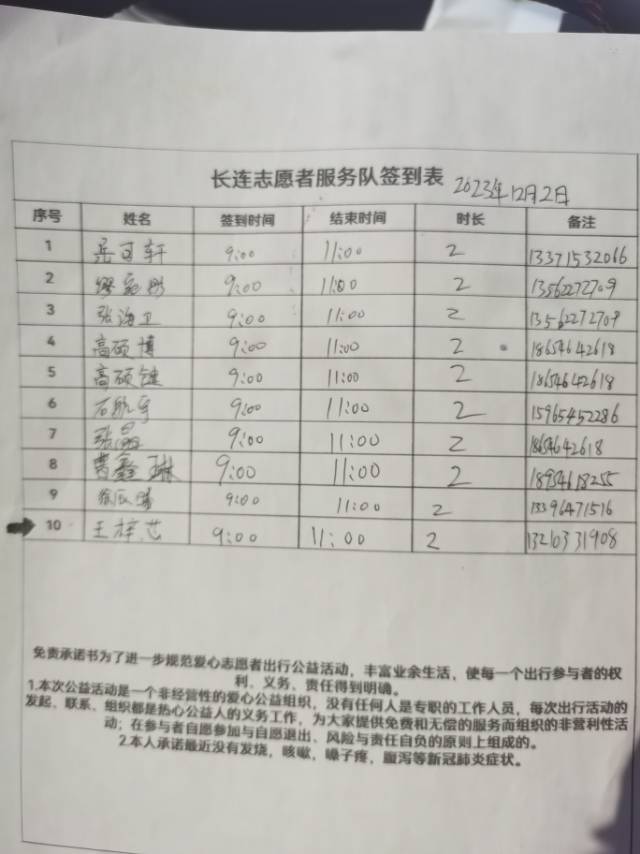 长连志愿者服务队签到表 2023年12月2日
序号 姓名 签到时间 结束时间 时长 备注
1 岳可轩 9:00 11:00 2 13371532066
2 9:00 11:00 2 13562272709
3 张海卫 9:00 11:00 2 13562272709
4 高硕博 9:00 11:00 2 18654642618
5 高硕健 9:00 11:00 2 18654642618
6 石航宇 9:00 11:00 2 15965452286
7 张晶 9:00 11:00 2 18654642618
8 曹鑫琳 9:00 11:00 2 18954618255
9 9:00 11:00 2 13396471516
10 王梓芯 9:00 11:00 2 13210331908
免责承诺书为了进一步规范爱心志愿者出行公益活动，丰富业余生活，使每一个出行参与者的权
利、义务、责任得到明确。
1.本次公益活动是一个非经营性的爱心公益组织，没有任何人是专职的工作人员，每次出行活动的
发起、联系、组织都是热心公益人的义务工作，为大家提供免费和无偿的服务而组织的非营利性活
动；在参与者自愿参加与自愿退出、风险与责任自负的原则上组成的。
2.本人承诺最近没有发烧，咳嗽，嗓子疼，腹泻等新冠肺炎症状。